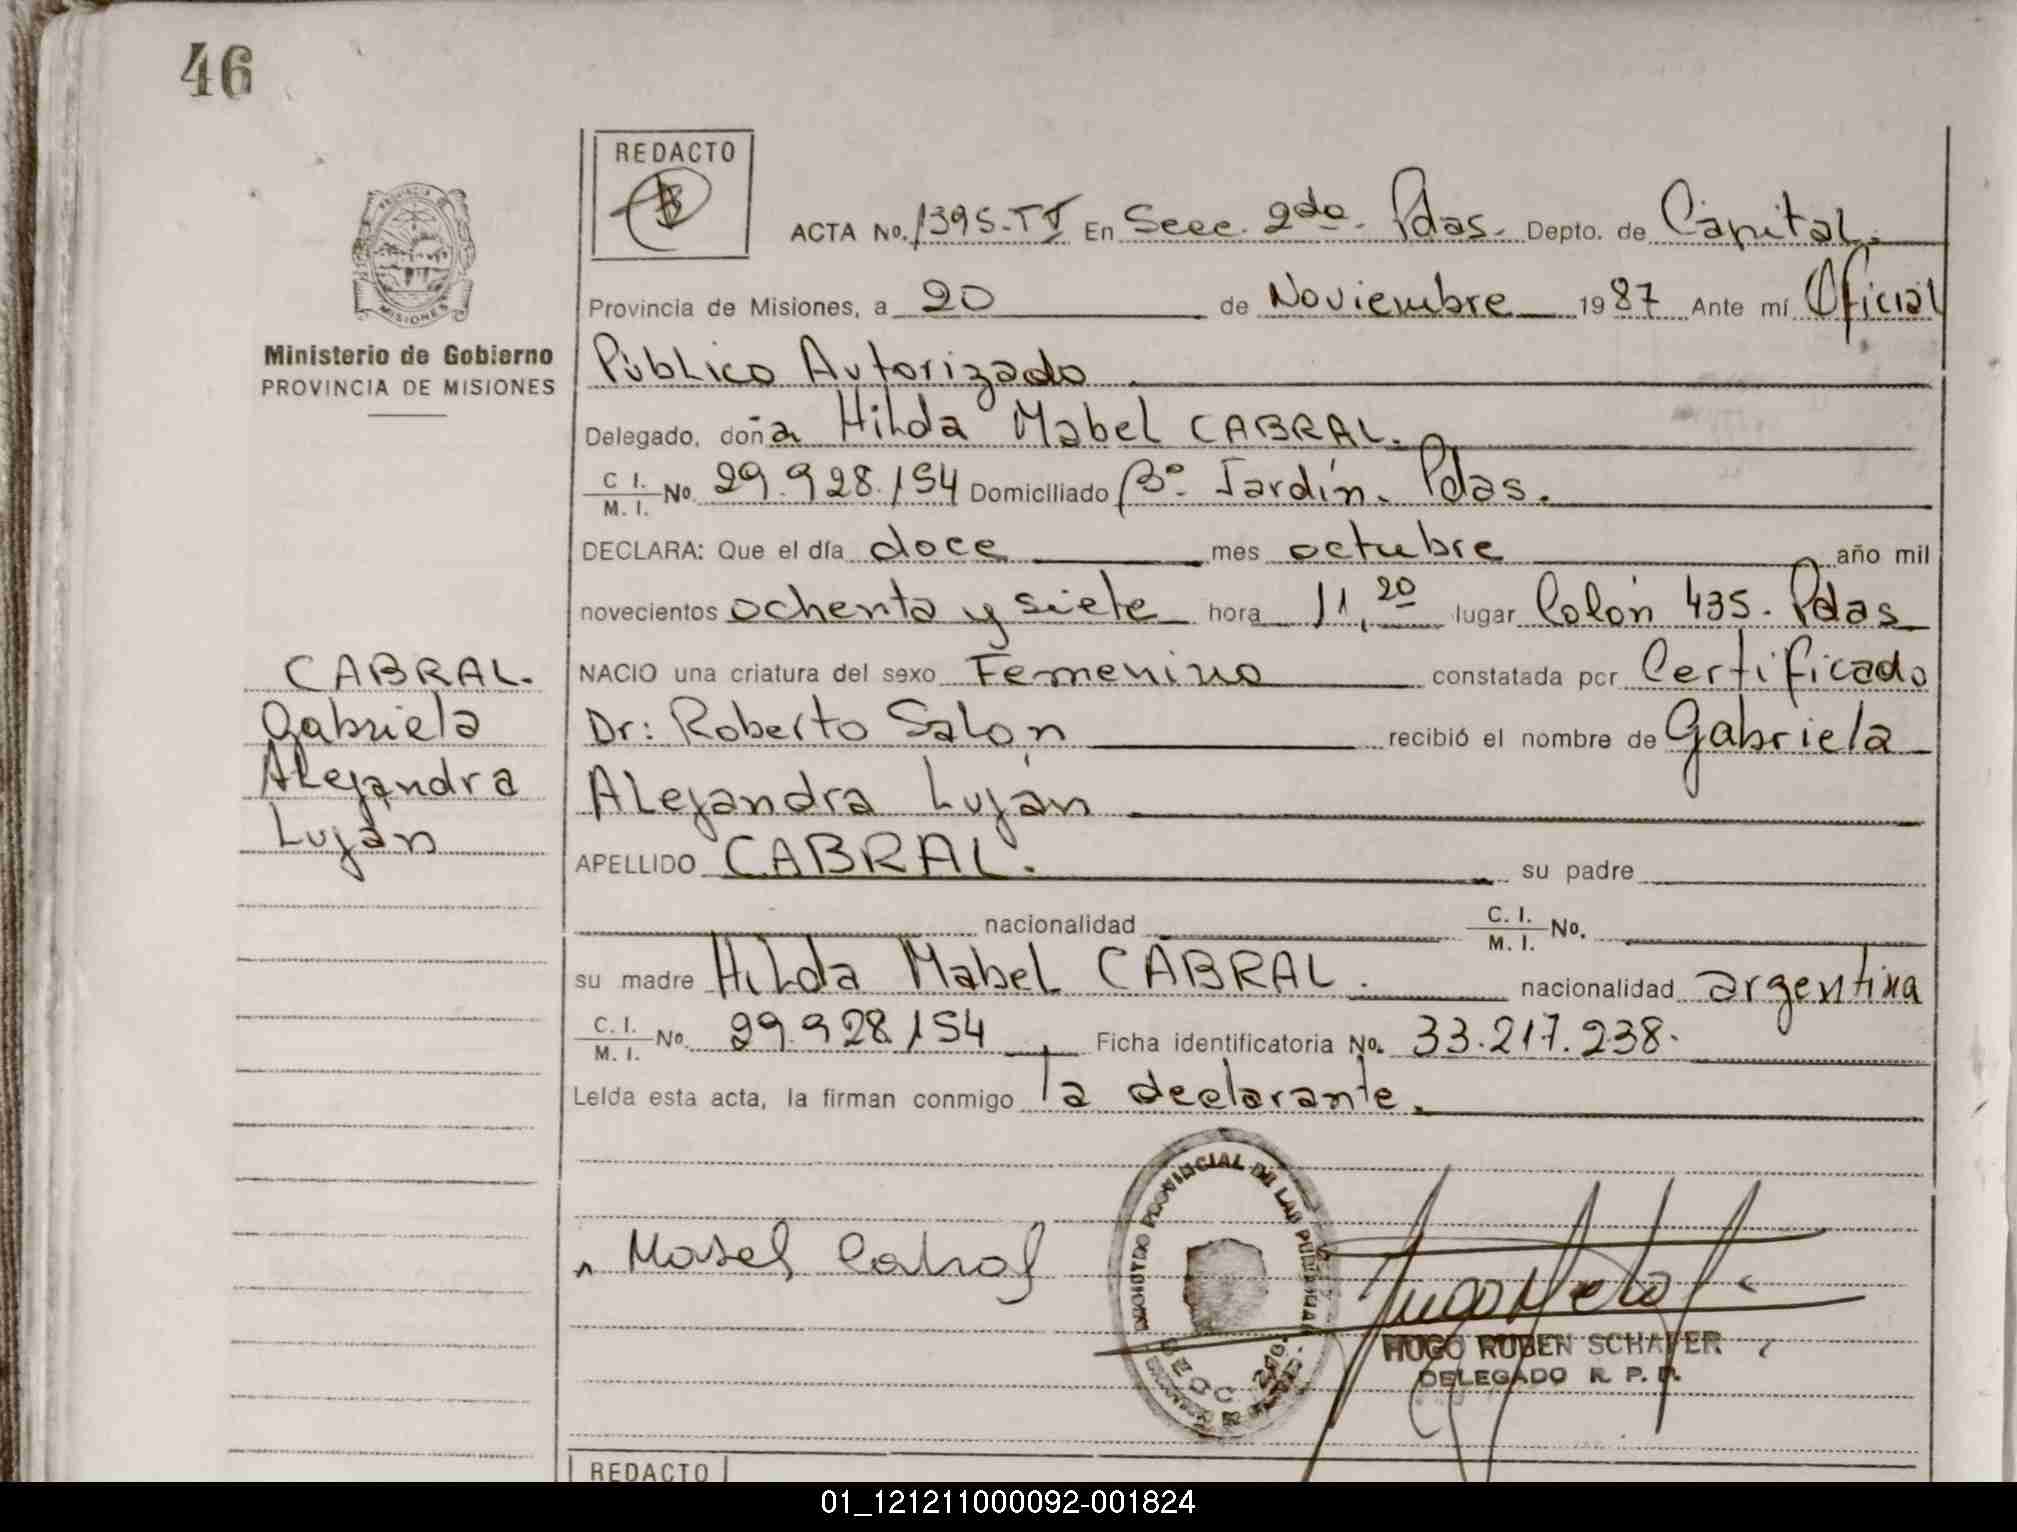 46
REDACTO
ACTA No. 1395-TI En Secc. 2da. Pdas. Depto. de Capital.
Provincia de Misiones, a 20 de Noviembre 1987 Ante mí Oficial
Público Autorizado
Delegado, doña Hilda Mabel CABRAL.
C. I. / M. I. No. 29.928.154 Domiciliado Bº. Jardín. Pdas.
DECLARA: Que el día doce mes octubre año mil
novecientos ochenta y siete hora 11,20 lugar Colón 435. Pdas
NACIO una criatura del sexo Femenino constatada por Certificado
Dr: Roberto Salón recibió el nombre de Gabriela
Alejandra Luján
APELLIDO CABRAL. su padre
nacionalidad C. I. / M. I. No.
su madre Hilda Mabel CABRAL. nacionalidad argentina
C. I. / M. I. No. 29.928.154 Ficha identificatoria No. 33.217.238.
Leída esta acta, la firman conmigo la declarante.
MISIONES
Ministerio de Gobierno
PROVINCIA DE MISIONES
CABRAL.
Gabriela
Alejandra
Luján
Mabel Cabral
PROVINCIAL DE LAS
HUGO RUBEN SCHAFER
DELEGADO R. P. P.
REDACTO
01_121211000092-001824